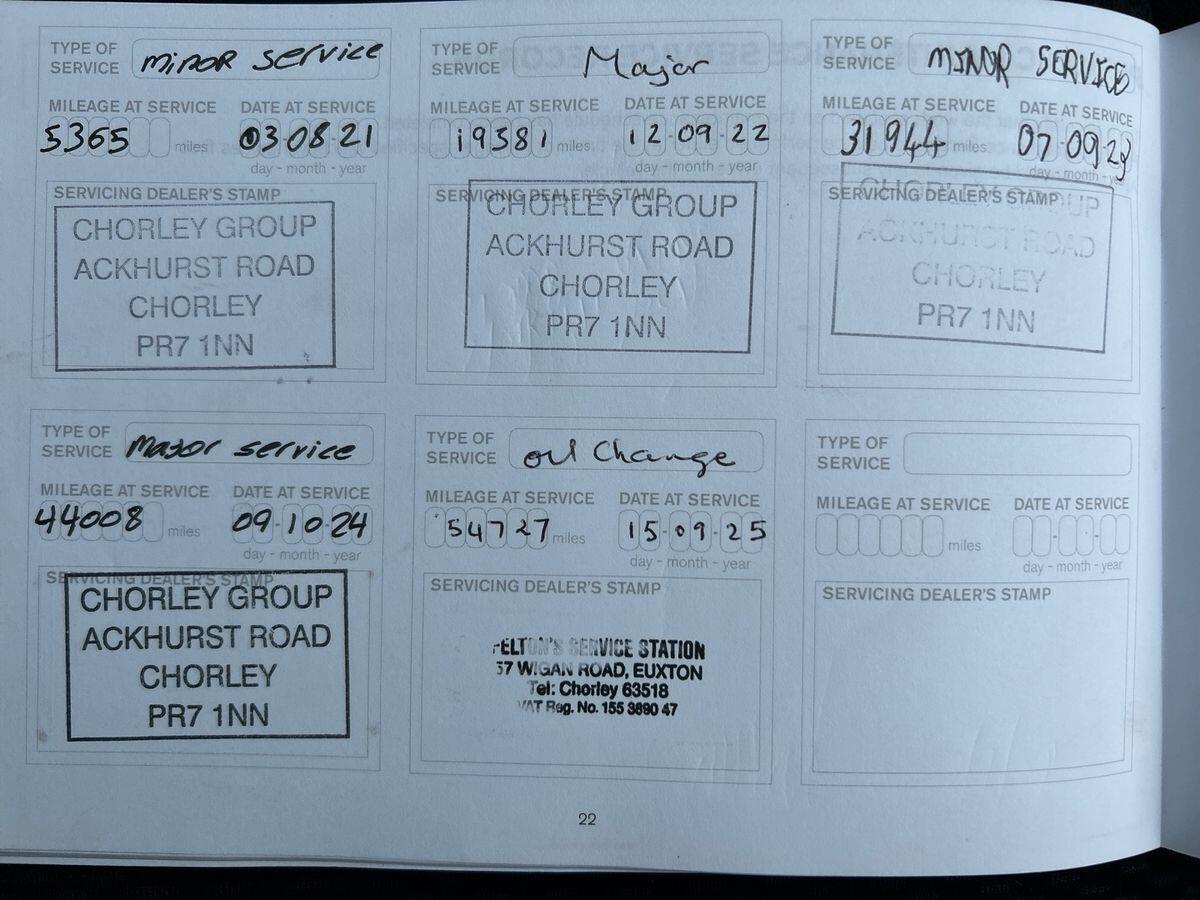 TYPE OF SERVICE minor service
MILEAGE AT SERVICE DATE AT SERVICE
5365 miles 03-08-21
day - month - year
SERVICING DEALER'S STAMP
CHORLEY GROUP
ACKHURST ROAD
CHORLEY
PR7 1NN
TYPE OF SERVICE Major
MILEAGE AT SERVICE DATE AT SERVICE
19381 miles 12-09-22
day - month - year
SERVICING DEALER'S STAMP
CHORLEY GROUP
ACKHURST ROAD
CHORLEY
PR7 1NN
TYPE OF SERVICE MINOR SERVICE
MILEAGE AT SERVICE DATE AT SERVICE
31944 miles 07-09-23
day - month - year
SERVICING DEALER'S STAMP
CHORLEY GROUP
ACKHURST ROAD
CHORLEY
PR7 1NN
TYPE OF SERVICE Major service
MILEAGE AT SERVICE DATE AT SERVICE
44008 miles 09-10-24
day - month - year
SERVICING DEALER'S STAMP
CHORLEY GROUP
ACKHURST ROAD
CHORLEY
PR7 1NN
TYPE OF SERVICE oil Change
MILEAGE AT SERVICE DATE AT SERVICE
54727 miles 15-09-25
day - month - year
SERVICING DEALER'S STAMP
SERVICE STATION
57 WIGAN ROAD, EUXTON
Tel: Chorley 63518
VAT Reg. No. 155 3890 47
TYPE OF SERVICE
MILEAGE AT SERVICE DATE AT SERVICE
miles
day - month - year
SERVICING DEALER'S STAMP
22